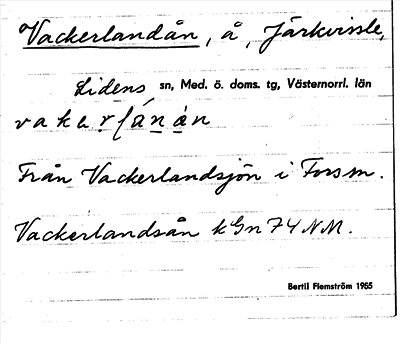 Vackerlandån, å, Järkvissle,
Lidens sn, Med. ö. doms. tg, Västernorrl. län
vakerlánán
Från Vackerlandsjön i Fors sn.
Vackerlandsån kGn 74 NM.
Bertil Flemström 1965